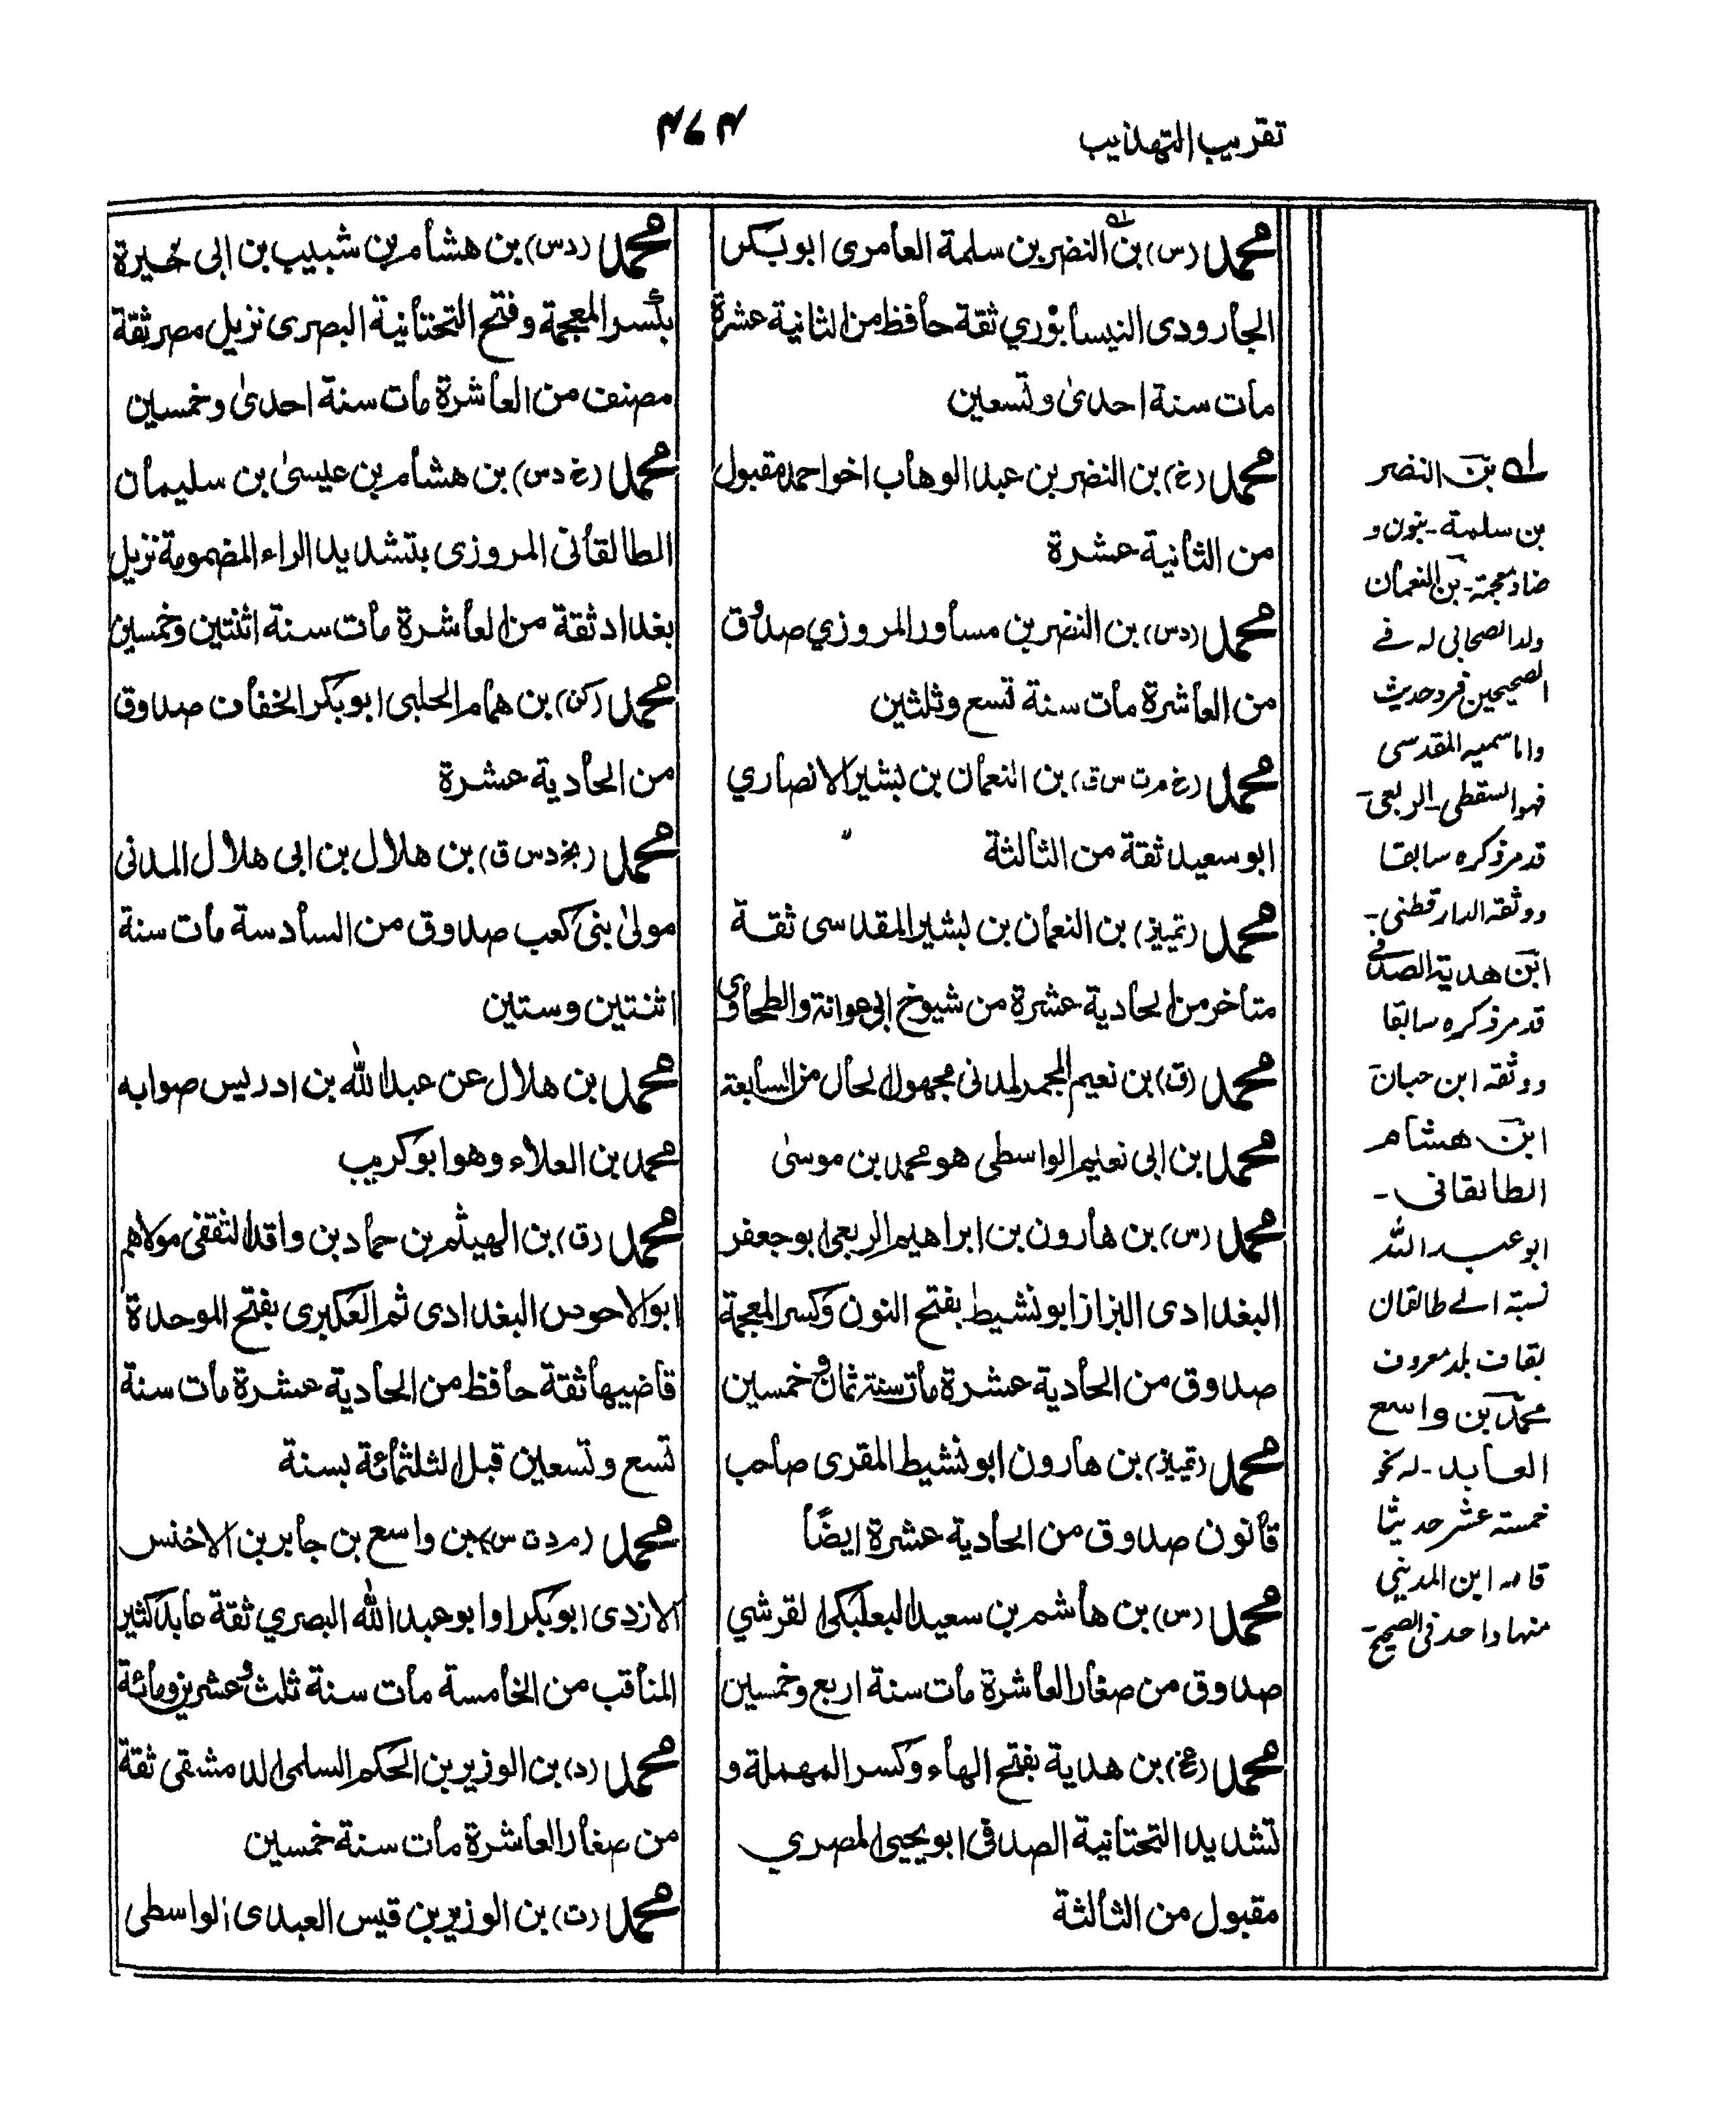 تقريب التهذيب
٤٧٤
محمد (س) بن النضر بن سلمة العامرى ابو بكر
الجارودى النيسابوري ثقة حافظ من الثانية عشرة
مات سنة احدىٰ وتسعين
محمد (خ) بن النضر بن عبد الوهاب اخو احمد مقبول
من الثانية عشرة
محمد (دس) بن النضر بن مساور المروزي صدوق
من العاشرة مات سنة تسع وثلثين
محمد (خ م ت س ق) بن النعمان بن بشير الانصاري
ابو سعيد ثقة من الثالثة
محمد (تمييز) بن النعمان بن بشير المقدسى ثقة
متأخر من الحادية عشرة من شيوخ ابى عوانة والطحاوى
محمد (ق) بن نعيم المجمر المدنى مجهول الحال من السابعة
محمد بن ابى نعيم الواسطى هو محمد بن موسىٰ
محمد (س) بن هارون بن ابراهيم الربعى ابو جعفر
البغدادى البزاز ابو نشيط بفتح النون وكسر المعجمة
صدوق من الحادية عشرة مات سنة ثمان وخمسين
محمد (تمييز) بن هارون ابو نشيط المقرى صاحب
قانون صدوق من الحادية عشرة ايضًا
محمد (س) بن هاشم بن سعيد البعلبكى القرشي
صدوق من صغار العاشرة مات سنة اربع وخمسين
محمد (عخ) بن هدية بفتح الهاء وكسر المهملة و
تشديد التحتانية الصدفى ابو يحيى المصري
مقبول من الثالثة
محمد (دس) بن هشام بن شبيب بن ابى خيرة
بكسر المعجمة وفتح التحتانية البصرى نزيل مصر ثقة
مصنف من العاشرة مات سنة احدىٰ وخمسين
محمد (خ دس) بن هشام بن عيسىٰ بن سليمان
الطالقانى المروزى بتشديد الراء المضمومة نزيل
بغداد ثقة من العاشرة مات سنة اثنتين وخمسين
محمد (كن) بن همام الحلبى ابو بكر الخفاف صدوق
من الحادية عشرة
محمد (بخ دس ق) بن هلال بن ابى هلال المدنى
مولىٰ بنى كعب صدوق من السادسة مات سنة
اثنتين وستين
محمد بن هلال عن عبد الله بن ادريس صوابه
محمد بن العلاء وهو ابو كريب
محمد (ق) بن الهيثم بن حماد بن واقد الثقفى مولاهم
ابو الاحوص البغدادى ثم العكبرى بفتح الموحدة
قاضيها ثقة حافظ من الحادية عشرة مات سنة
تسع وتسعين قبل الثلثمائة بسنة
محمد (م د ت س) بن واسع بن جابر بن الاخنس
الازدى ابو بكر او ابو عبد الله البصري ثقة عابد كثير
المناقب من الخامسة مات سنة ثلث وعشرين ومائة
محمد (د) بن الوزير بن الحكم السلمى الدمشقى ثقة
من صغار العاشرة مات سنة خمسين
محمد (ت) بن الوزير بن قيس العبدى الواسطى
له بن النضر
بن سلمة ـ بنون و
ضاد معجمة ـ بن النعمان
ولد الصحابى له فے
الصحيحين فرد حديث
واما سميه المقدسى
فهو السقطى ـ الربعى ـ
قد مر ذكره سابقا
ووثقه الدارقطنى ـ
ابن هدية الصدفے
قد مر ذكره سابقا
ووثقه ابن حبان
ابن هشام
الطالقانى ـ
ابو عبد الله
نسبة الے طالقان
بقاف بلد معروف
محمد بن واسع
العابد ـ له نحو
خمسة عشر حديثا
قاله ابن المدينى
منها واحد فى الصحيح ـ